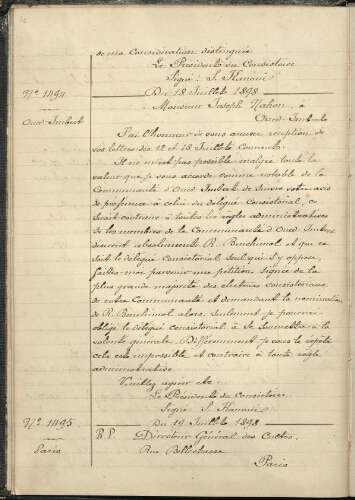 de ma Considération distinguée
Le Président du Consistoire
Signé: S. Kanoui
Nº 1494
Du 18 Juillet 1898
Oued-Imbert
Monsieur Joseph Nahon, à
Oued-Imbert
J'ai l'honneur de vous accuser réception de
vos lettres des 12 et 18 Juillet Courant.
Il ne m'est pas possible malgré toute la
valeur que je vous accorde comme notable de la
Communauté d'Oued Imbert de suivre votre avis
de préférence à celui du délégué Consistorial, ce
serait contraire à toutes les règles administratives
si les membres de la Communauté d'Oued Imbert
désirent absolument R. Benchimol et que ce
soit le délégué Consistorial seul qui s'y oppose,
faites-moi parvenir une pétition signée de la
plus grande majorité des électeurs consistoriaux
de votre Communauté et demandant la nomination
de R. Benchimol alors, seulement je pourrai
obliger le délégué consistorial à se soumettre à la
volonté générale. Différemment je vous le répète
cela est impossible et contraire à toute règle
administrative.
Veuillez agréer etc.
Le Président du Consistoire
Signé: S. Kanoui
Nº 1495
Du 19 Juillet 1898
Paris
R. P. Directeur Général des Cultes,
Rue Bellechasse
Paris